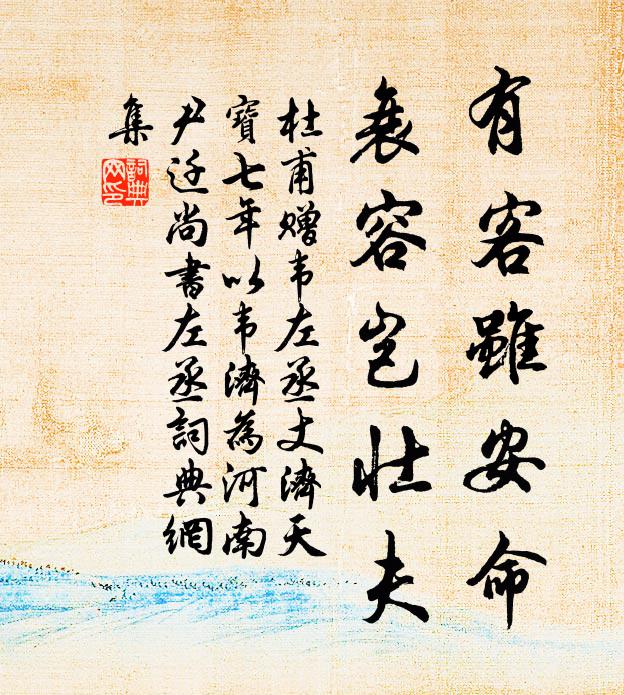 有客雖安命
衰容岂壮夫
杜甫赠韦左丞丈濟天
寶七年以韦濟為河南
尹迁尚書左丞詞典網
集
詞典
网印